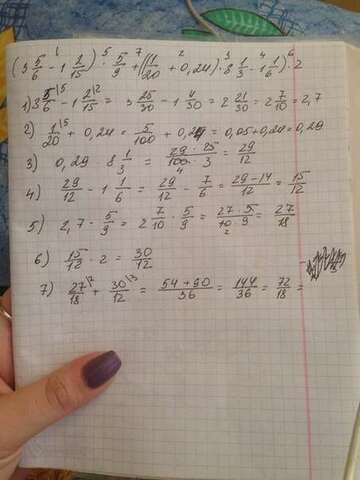 (3 5/6 - 1 2/15) · 5/9 + ((1/20 + 0,24) · 8 1/3 - 1 1/6) · 2
1) 3 5/6 - 1 2/15 = 3 25/30 - 1 4/30 = 2 21/30 = 2 7/10 = 2,7
2) 1/20 + 0,24 = 5/100 + 0,24 = 0,05+0,24 = 0,29
3) 0,29 8 1/3 = 29 · 25/100 · 3 = 29/12
4) 29/12 - 1 1/6 = 29/12 - 7/6 = 29-14/12 = 15/12
5) 2,7 · 5/9 = 2 7/10 · 5/9 = 27 · 5/10 · 9 = 27/18
6) 15/12 · 2 = 30/12
7) 27/18 + 30/12 = 54+90/36 = 144/36 = 72/18 =